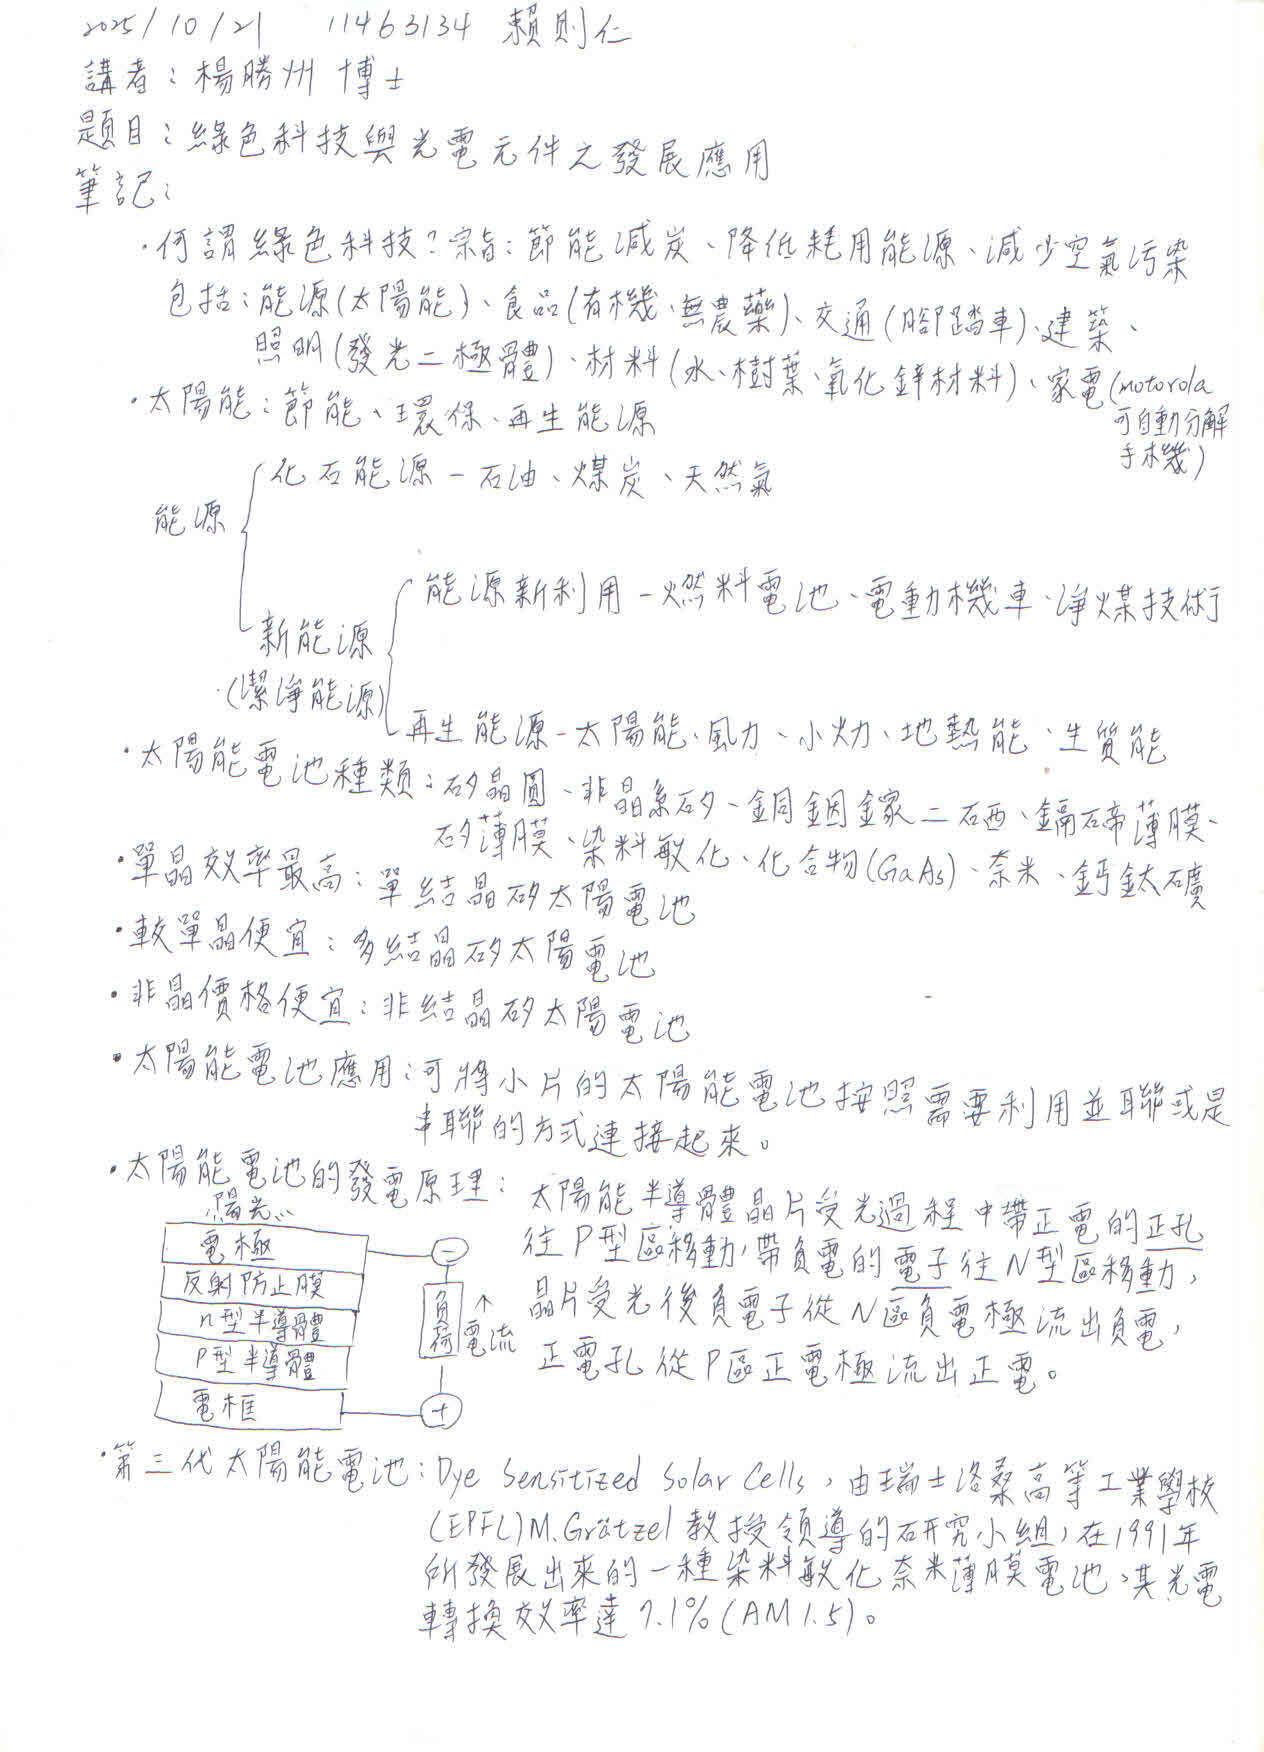 2025/10/21 11463134 賴則仁
講者：楊勝州 博士
題目：綠色科技與光電元件之發展應用
筆記：
・何謂綠色科技？宗旨：節能減炭、降低耗用能源、減少空氣污染
包括：能源(太陽能)、食品(有機、無農藥)、交通(腳踏車)、建築、
照明(發光二極體)、材料(水、樹葉、氧化鋅材料)、家電(motorola
可自動分解
手機)
・太陽能：節能、環保、再生能源
化石能源－石油、煤炭、天然氣
能源
能源新利用－燃料電池、電動機車、淨煤技術
新能源
(潔淨能源)
再生能源－太陽能、風力、小水力、地熱能、生質能
・太陽能電池種類：矽晶圓、非晶系矽、銅銦鎵二硒、鎘碲薄膜、
矽薄膜、染料敏化、化合物(GaAs)、奈米、鈣鈦礦
・單晶效率最高：單結晶矽太陽電池
・較單晶便宜：多結晶矽太陽電池
・非晶價格便宜：非結晶矽太陽電池
・太陽能電池應用：可將小片的太陽能電池按照需要利用並聯或是
串聯的方式連接起來。
・太陽能電池的發電原理：
太陽能半導體晶片受光過程中帶正電的正孔
往P型區移動，帶負電的電子往N型區移動，
晶片受光後負電子從N區負電極流出負電，
正電孔從P區正電極流出正電。
陽光
電極
反射防止膜
n型半導體
P型半導體
電極
－
負荷
↑
電流
＋
・第三代太陽能電池：Dye Sensitized Solar Cells，由瑞士洛桑高等工業學校
(EPFL)M.Grätzel 教授領導的研究小組，在1991年
所發展出來的一種染料敏化奈米薄膜電池，其光電
轉換效率達7.1%(AM1.5)。